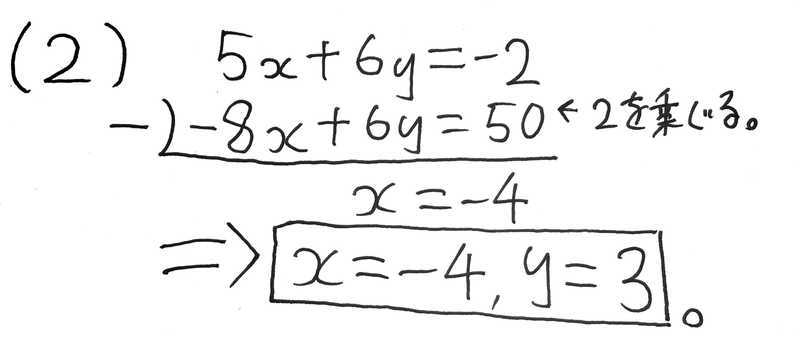 (2) 5x+6y=-2
-)-8x+6y=50←2を乗じる。
x=-4
⇒ x=-4, y=3。